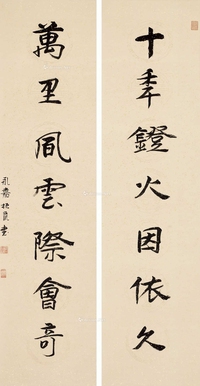 十年鐙火因依久
萬里風雲際會奇